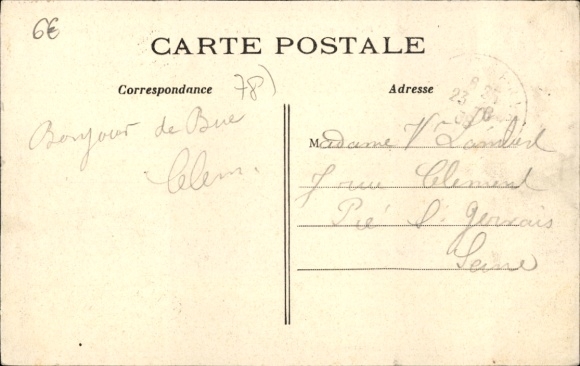 6€
CARTE POSTALE
Correspondance
78)
Adresse
8
23
Bonjour de Buc
Clem.
Madame V
7 rue Clement
Pré St Gervais
Seine